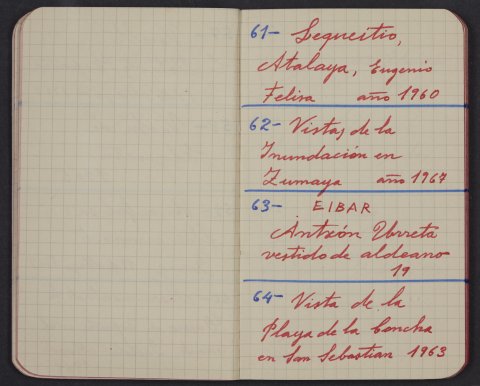 61- Lequeitio,
Atalaya, Eugenio
Felisa año 1960
62- Vistas de la
Inundación en
Zumaya año 1967
63- EIBAR
Antxón Urreta
vestido de aldeano
19
64- Vista de la
Playa de la Concha
en San Sebastian 1963